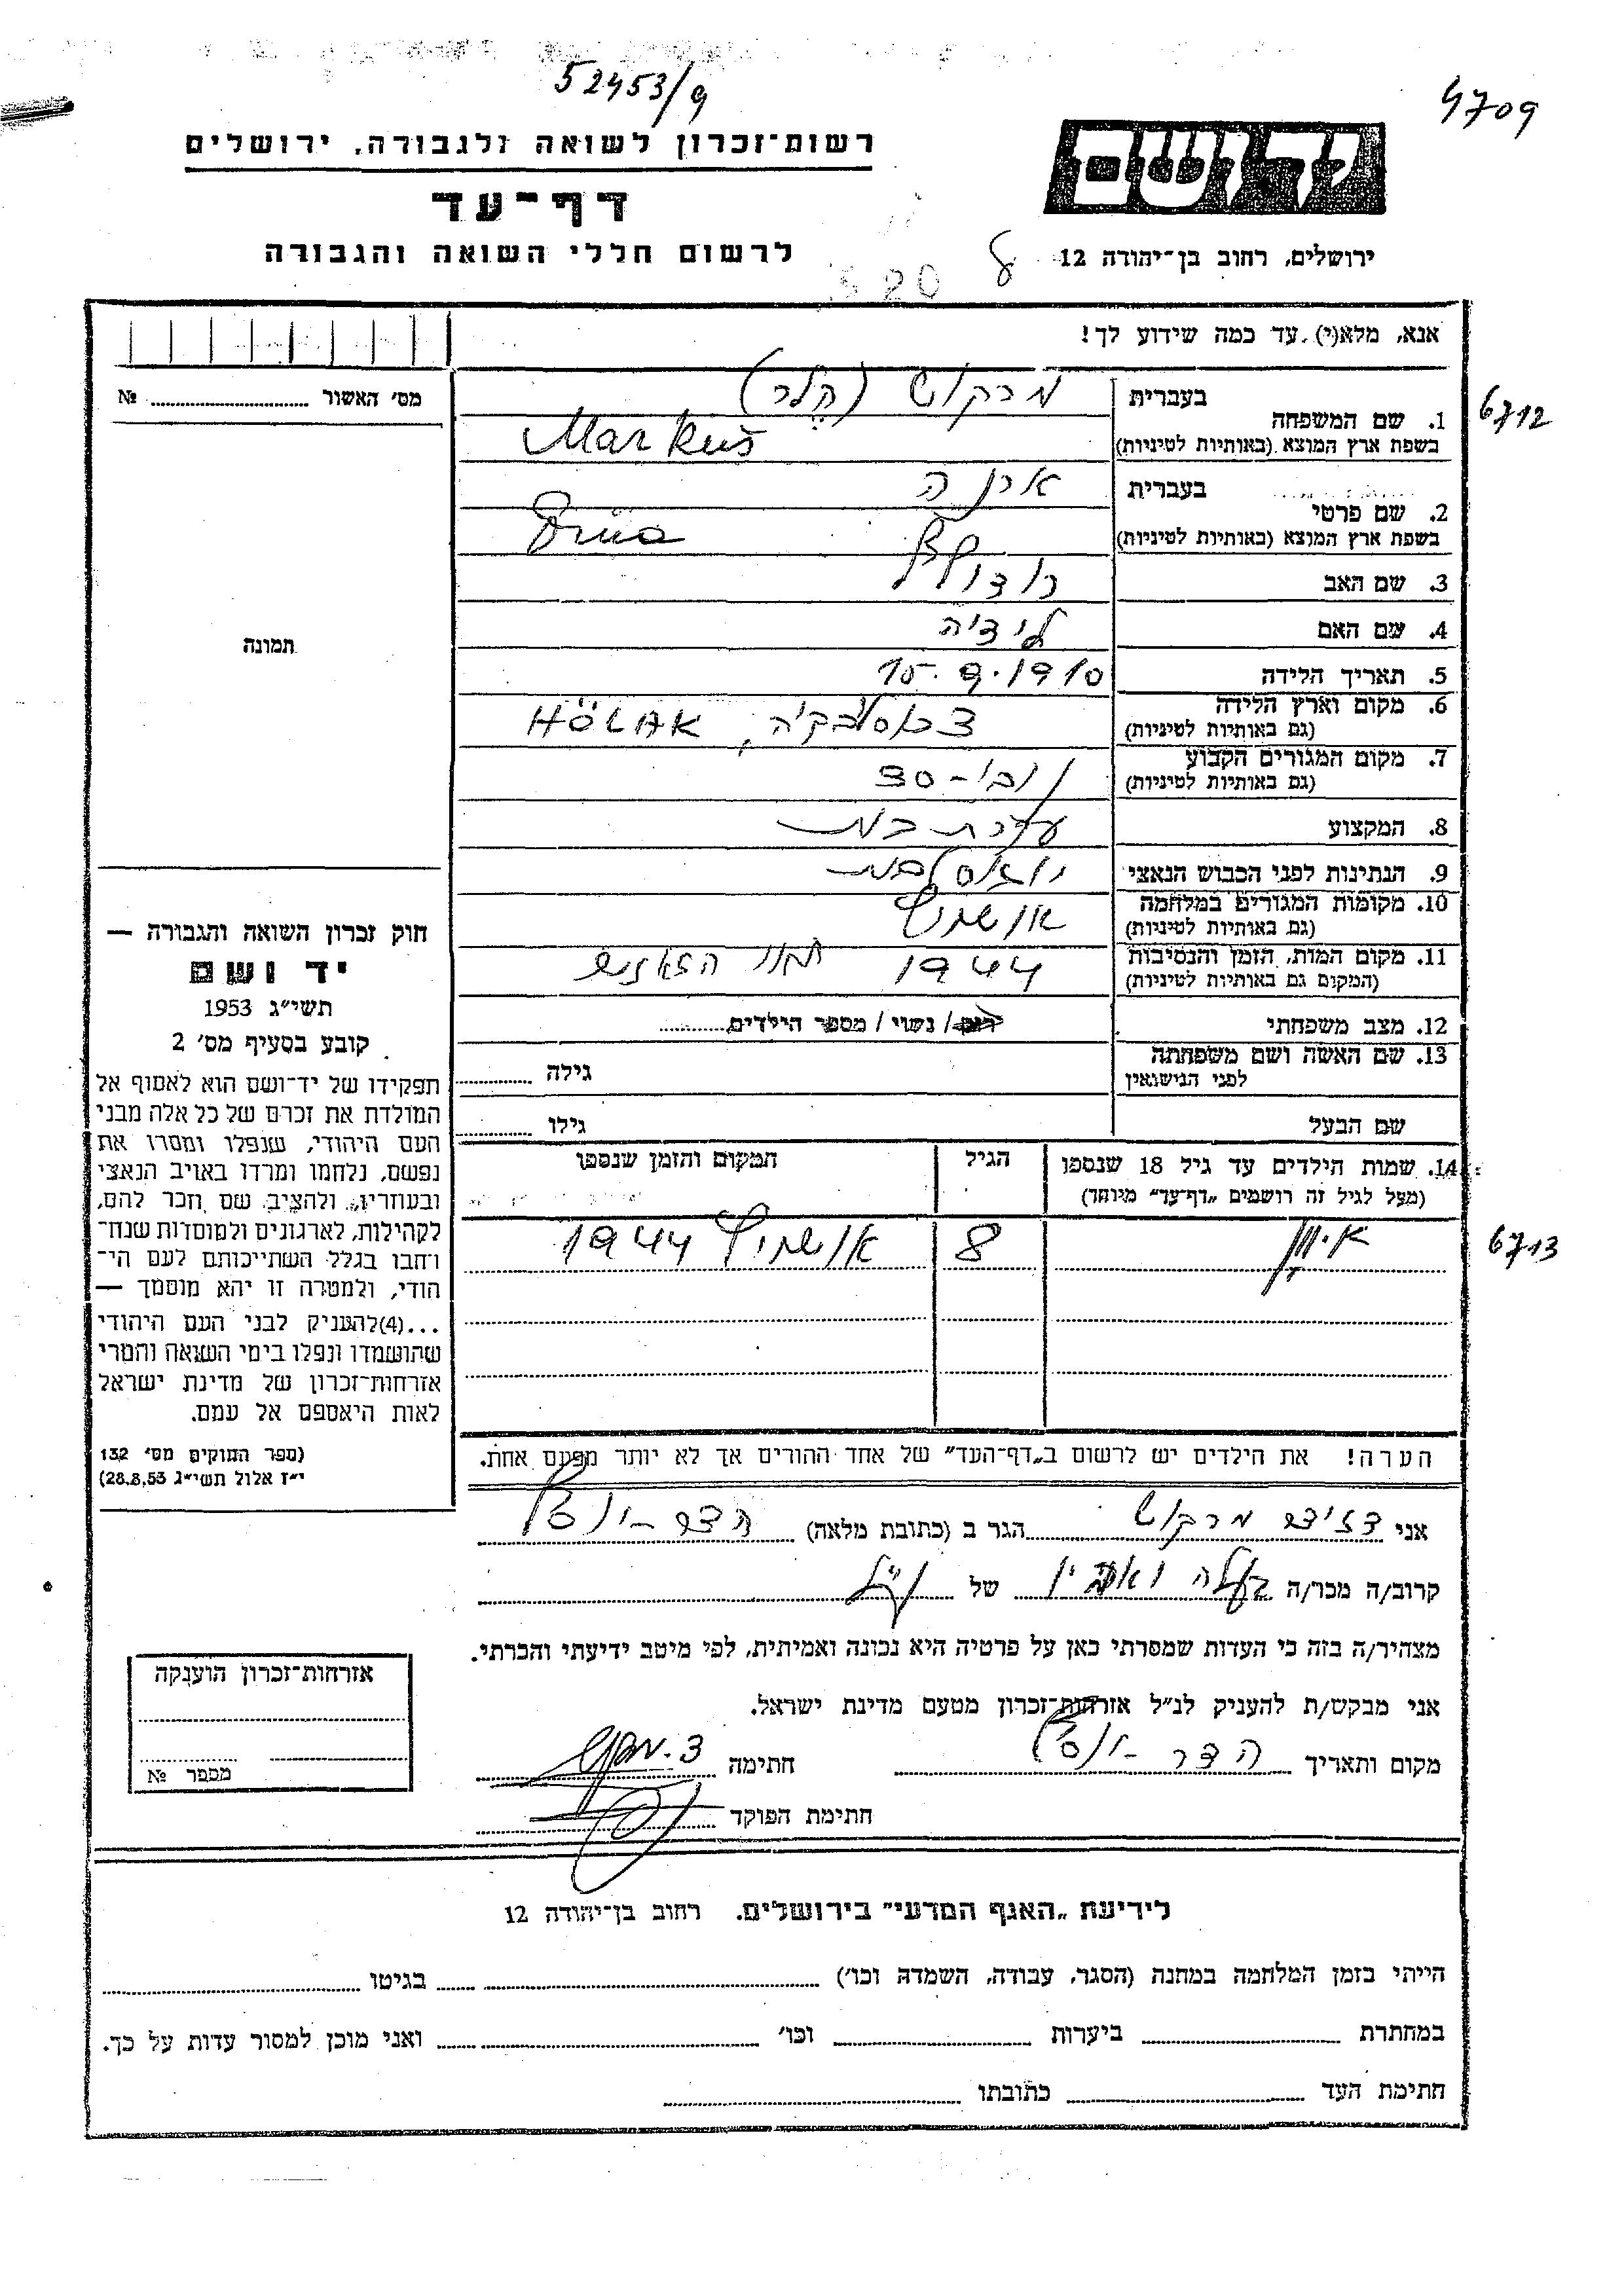 52453/9
4709
רשות־זכרון לשואה ולגבורה, ירושלים
יד ושם
דף־עד
לרשום חללי השואה והגבורה
ירושלים, רחוב בן־יהודה 12
אנא, מלא(י) עד כמה שידוע לך!
מס׳ האשור № 
1. שם המשפחה
בעברית מרקוש (הלר)
בשפת ארץ המוצא (באותיות לטיניות) Markuš
6712
2. שם פרטי
בעברית אירנה
בשפת ארץ המוצא (באותיות לטיניות)
3. שם האב רודולף
4. שם האם לידיה
5. תאריך הלידה 15.9.1910
6. מקום וארץ הלידה
(גם באותיות לטיניות) HÖLAK
7. מקום המגורים הקבוע
(גם באותיות לטיניות) נובי-סד
8. המקצוע עקרת בית
9. הנתינות לפני הכבוש הנאצי יוגוסלבית
10. מקומות המגורים במלחמה
(גם באותיות לטיניות) אושוויץ
11. מקום המות, הזמן והנסיבות
(המקום גם באותיות לטיניות) 1944 תנורי הגזים
12. מצב משפחתי רווק / נשוי / מספר הילדים
13. שם האשה ושם משפחתה
לפני הנישואין גילה
שם הבעל גילו
14. שמות הילדים עד גיל 18 שנספו
(מעל לגיל זה רושמים „דף־עד״ מיוחד)
הגיל
המקום והזמן שנספו
איוון 8 אושוויץ 1944
6713
הערה! את הילדים יש לרשום ב„דף־העד״ של אחד ההורים אך לא יותר מפעם אחת.
תמונה
חוק זכרון השואה והגבורה —
יד ושם
תשי״ג 1953
קובע בסעיף מס׳ 2
תפקידו של יד־ושם הוא לאסוף אל
המולדת את זכרם של כל אלה מבני
העם היהודי, שנפלו ומסרו את
נפשם, נלחמו ומרדו באויב הנאצי
ובעוזריו, ולהציב שם וזכר להם,
לקהילות, לארגונים ולמוסדות שנח־
רחבו בגלל השתייכותם לעם הי־
הודי, ולמטרה זו יהא מוסמך —
...(4)להעניק לבני העם היהודי
שהושמדו ונפלו בימי השואה והמרי
אזרחות־זכרון של מדינת ישראל
לאות היאספם אל עמם.
(ספר החוקים מס׳ 132
י״ז אלול תשי״ג 28.8.53)
אני מרקוש הגר ב (כתובת מלאה) הדר-יוסף
קרוב/ה מכר/ה בעלה ואביו של הנ״ל
מצהיר/ה בזה כי העדות שמסרתי כאן על פרטיה היא נכונה ואמיתית, לפי מיטב ידיעתי והכרתי.
אני מבקש/ת להעניק לנ״ל אזרחות־זכרון מטעם מדינת ישראל.
מקום ותאריך הדר-יוסף חתימה
חתימת הפוקד
אזרחות־זכרון הוענקה
מספר №
לידיעת „האגף המדעי״ בירושלים. רחוב בן־יהודה 12
הייתי בזמן המלחמה במחנה (הסגר, עבודה, השמדה וכו׳) בגיטו
במחתרת ביערות וכו׳ ואני מוכן למסור עדות על כך.
חתימת העד כתובתו